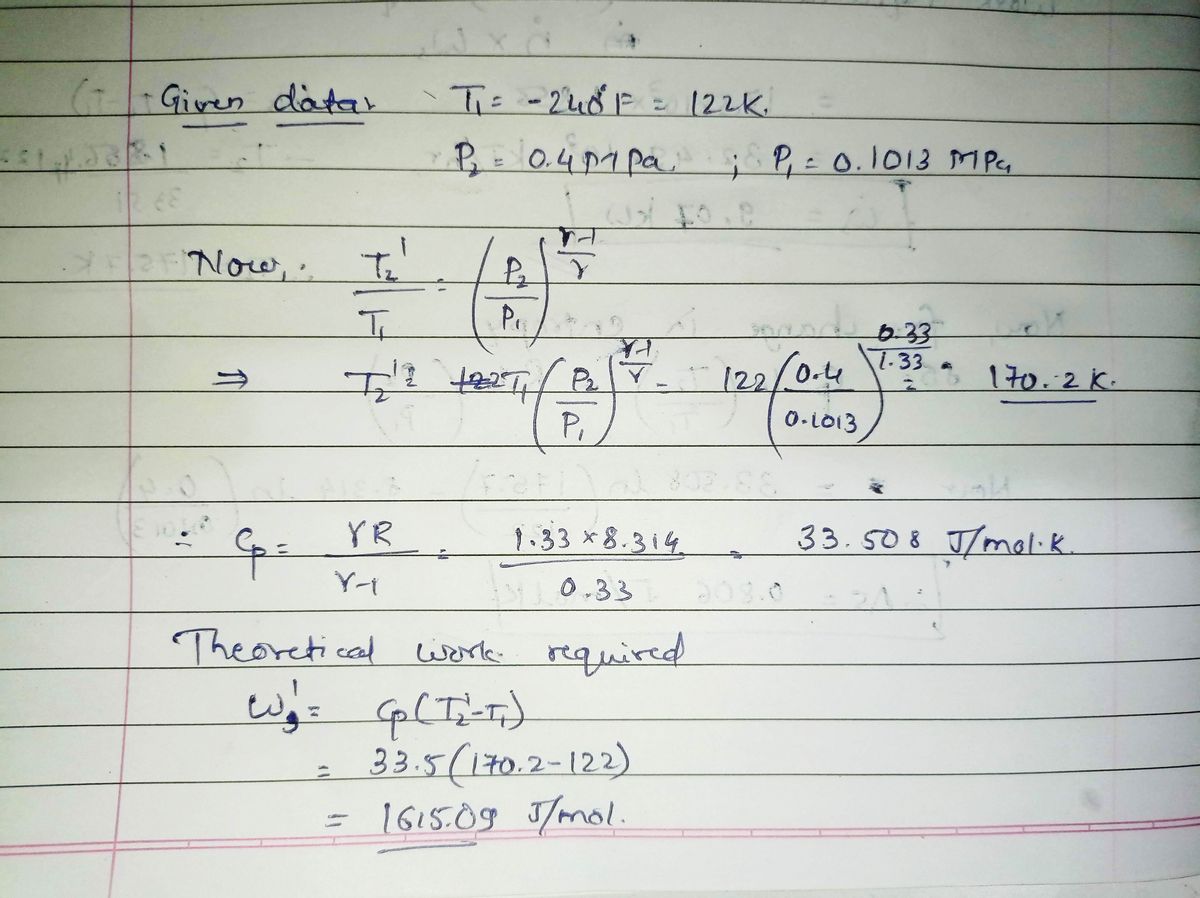 Given data:   T₁ = -240°F = 122K.
P₂ = 0.4 MPa ; P₁ = 0.1013 MPa
Now, T₂'/T₁ = (P₂/P₁)^((γ-1)/γ)
⇒ T₂' = T₁ (P₂/P₁)^((γ-1)/γ) = 122 (0.4/0.1013)^(0.33/1.33) = 170.2 K.
∴ Cp = γR/(γ-1) = (1.33 × 8.314)/0.33 = 33.508 J/mol.K.
Theoretical work required
' = Cp (T₂'-T₁)
= 33.5 (170.2-122)
= 1615.09 J/mol.